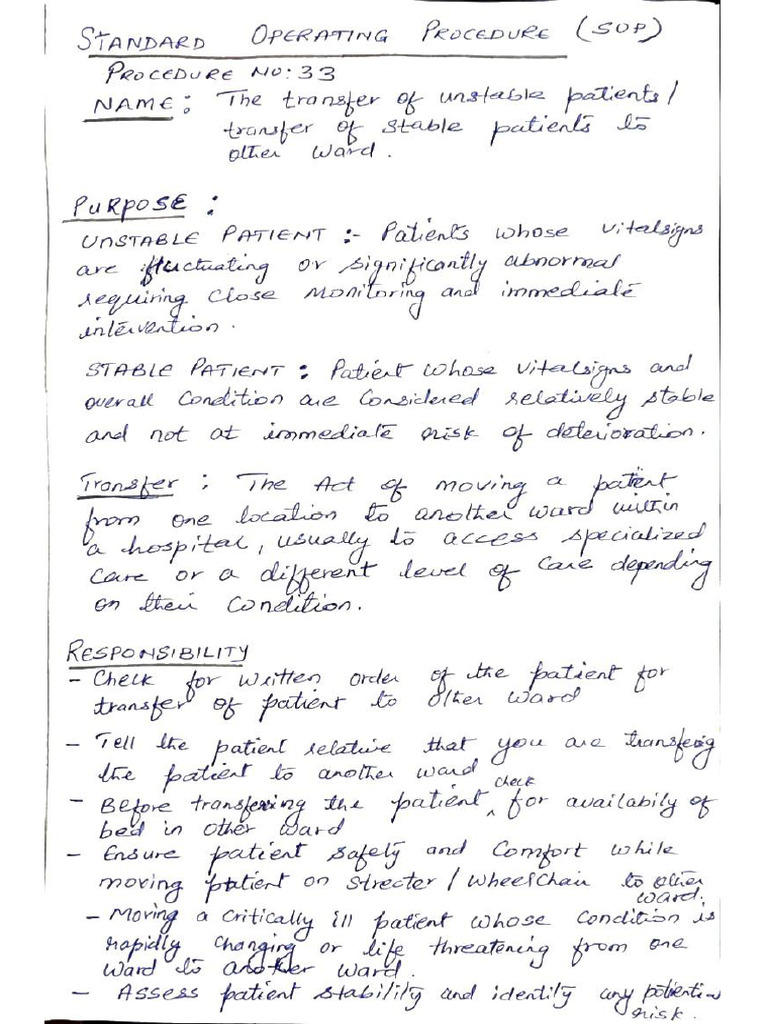 STANDARD OPERATING PROCEDURE (SOP)
PROCEDURE NO: 33
NAME: The transfer of unstable patients/
transfer of stable patients to
other ward.
PURPOSE :
UNSTABLE PATIENT :- Patients whose vitalsigns
are fluctuating or significantly abnormal
requiring close monitoring and immediate
intervention.
STABLE PATIENT : Patient whose vitalsigns and
overall condition are considered relatively stable
and not at immediate risk of deterioration.
Transfer : The Act of moving a patient
from one location to another ward within
a hospital, usually to access specialized
care or a different level of care depending
on their condition.
RESPONSIBILITY
- Check for written order of the patient for
transfer of patient to other ward
- Tell the patient relative that you are transfering
the patient to another ward
- Before transfering the patient check for availabily of
bed in other ward
- Ensure patient safety and comfort while
moving patient on strecter / wheelchair to other
ward.
- Moving a critically ill patient whose condition is
rapidly changing or life threatening from one
ward to another ward.
- Assess patient stability and identity any potential
risk.